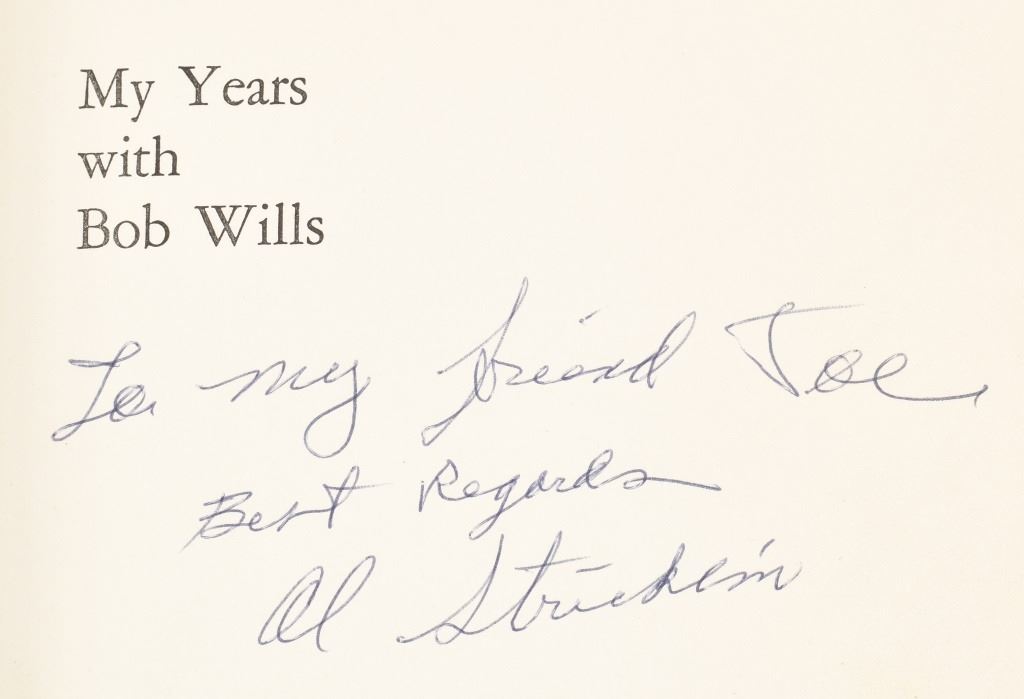 My Years
with
Bob Wills
To my friend Joe
Best Regards
Al Stricklin